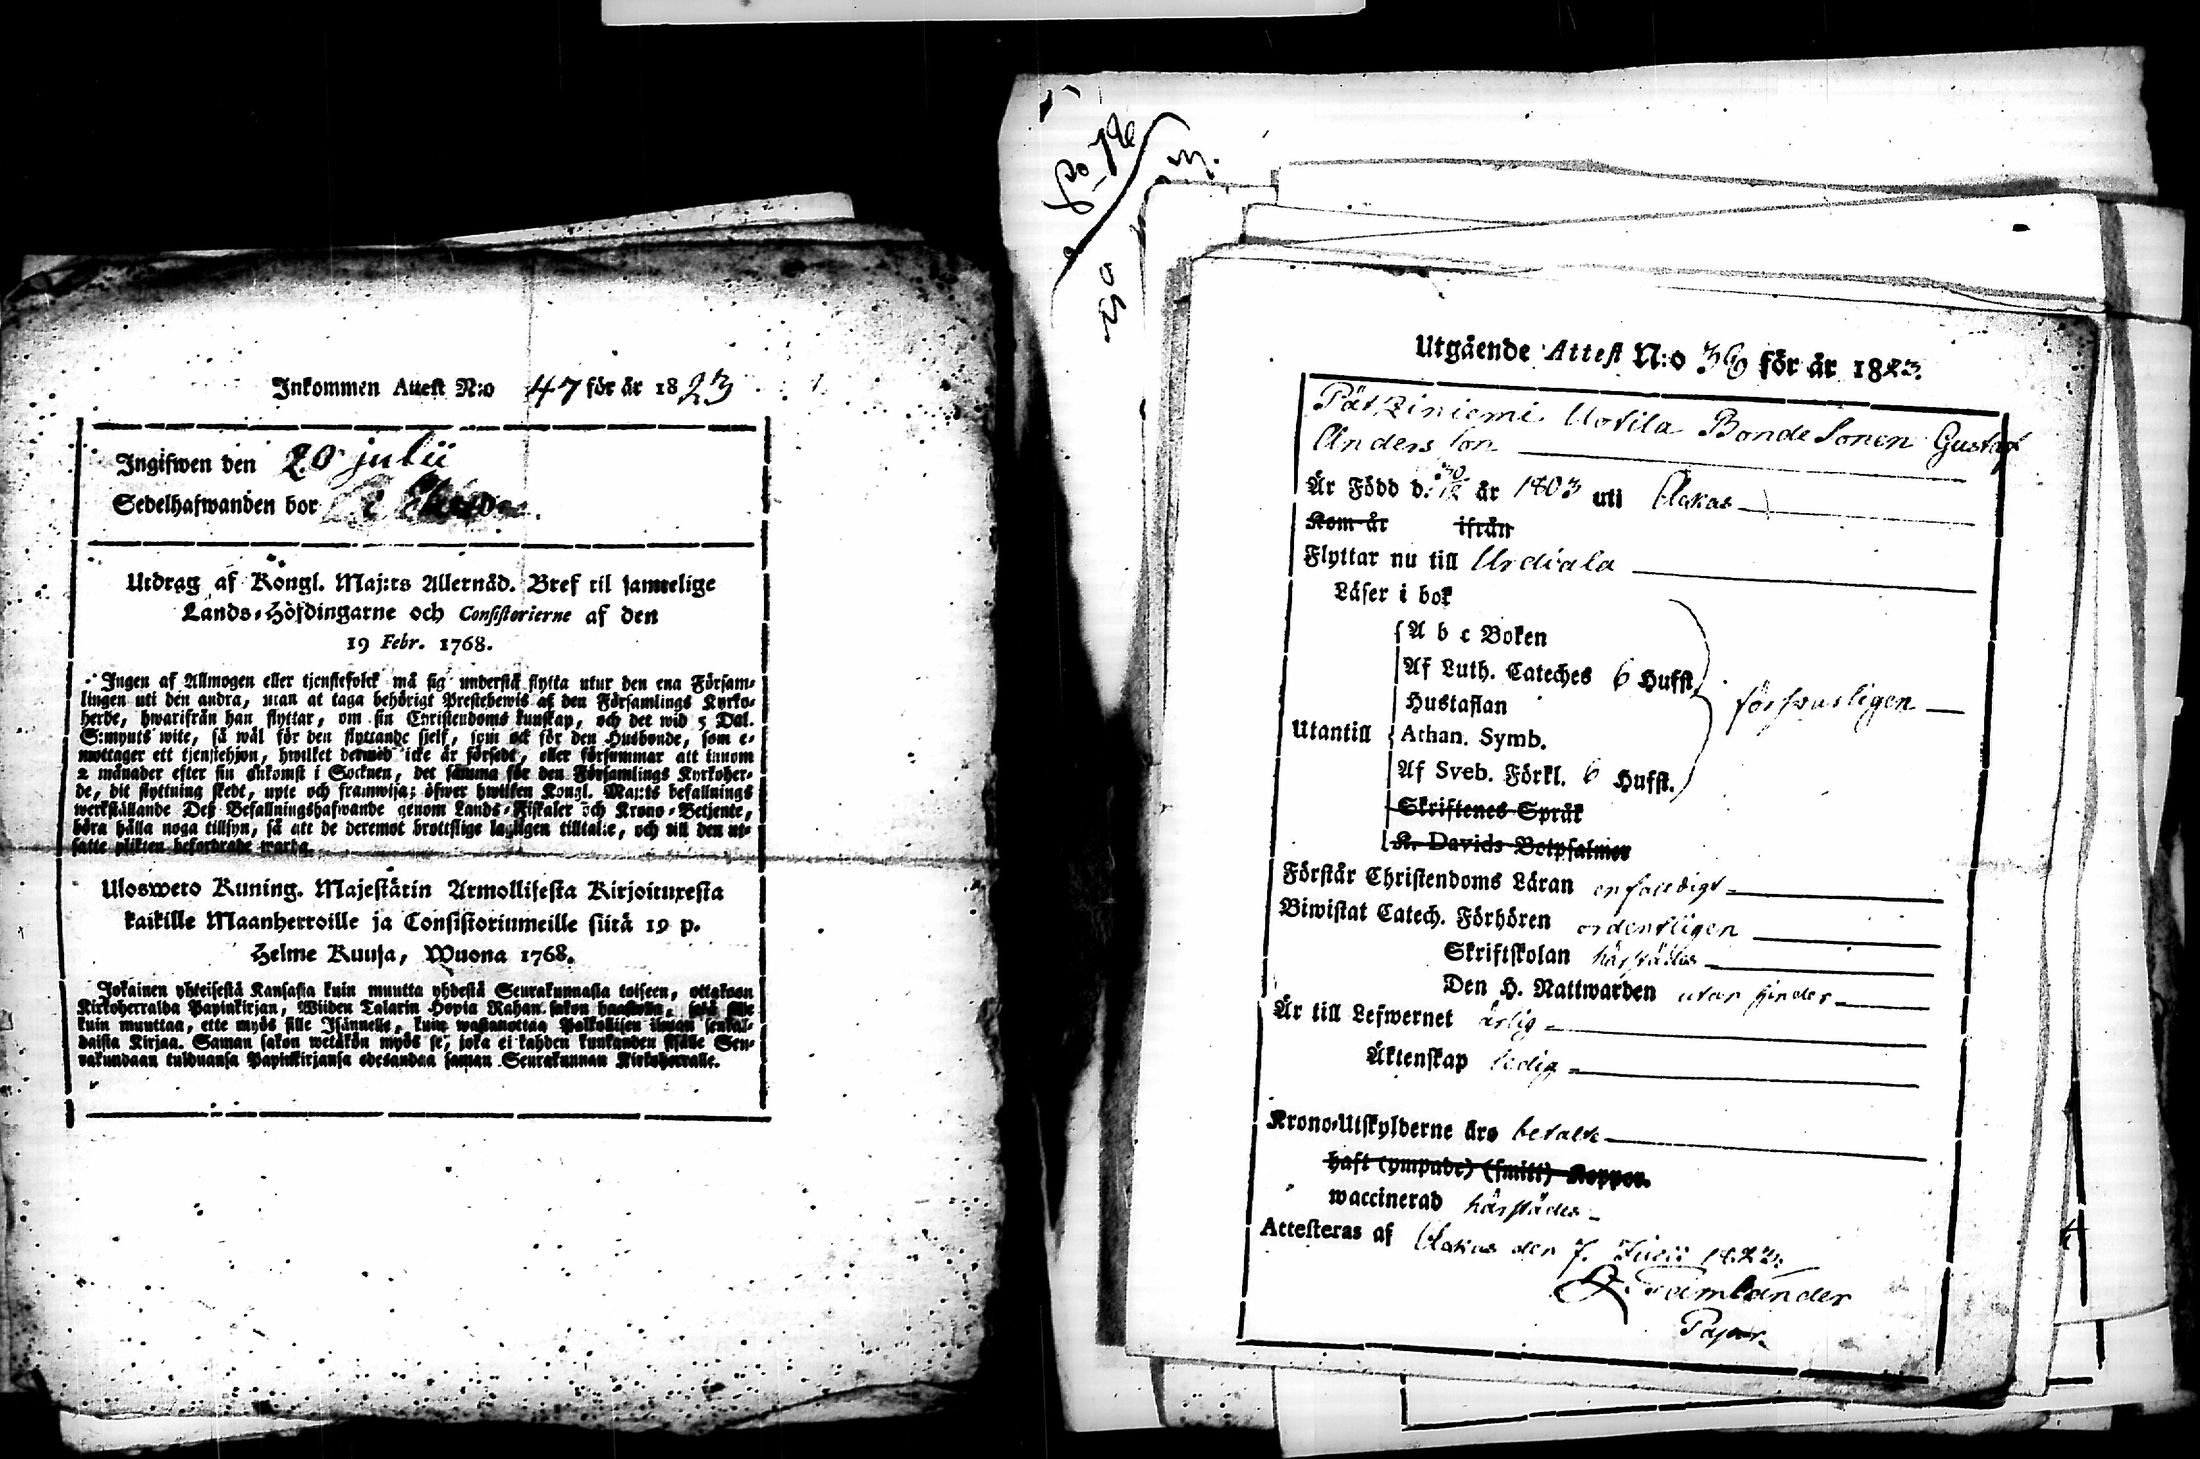 Inkommen Attest N:o 47 för år 1823
Ingifwen den 20 julii
Sedelhafwanden bor
Utdrag af Kongl. Maj:ts Allernåd. Bref til samtelige
Lands-Höfdingarne och Consistorierne af den
19 Febr. 1768.
Ingen af Allmogen eller tjenstefolck må sig understå flytta utur den ena Försam-
lingen uti den andra, utan at taga behörigt Prestebewis af den Församlings Kyrko-
herde, hwarifrån han flyttar, om sin Christendoms kunskap, och det wid 5 Dal.
S:mynts wite, så wäl för den flyttande sjelf, som ock för den Husbonde, som e-
mottager ett tjenstehjon, hwilket dermed icke är försedt, eller försummar att innom
2 månader efter sin ankomst i Socknen, det samma för den Församlings Kyrkoher-
de, dit flyttning skedt, upte och framwisa; öfwer hwilken Kongl. Maj:ts befallnings
werkställande Deß Befallningshafwande genom Lands-Fiskaler och Krono-Betjente,
böra hålla noga tillsyn, så att de deremot brottslige lagligen tilltalas, och till den ut-
satte plikten befordrade warda.
Ulosweto Kuning. Majestätin Armollisesta Kirjoituxesta
kaikille Maanherroille ja Consistoriumeille siitä 19 p.
Helme Kuusa, Wuona 1768.
Jokainen yhteisestä Kansasta kuin muutta yhdestä Seurakunnasta toiseen, ottakoon
Kirkoherralda Papinkirjan, Wiiden Talarin Hopia Rahan sakon haastolla, sekä sille
kuin muuttaa, ette myös sille Isännelle, kuin wastanottaa Palkollisen ilman senkal-
daista Kirjaa. Saman sakon wetäkön myös se, joka ei kahden kuukauden sisälle Seu-
rakundaan tulduansa Papinkirjansa edesandaa saman Seurakunnan Kirkoherralle.
Utgående Attest N:o 36 för år 1823.
Pätziniemi Uotila Bonde Sonen Gustaf
Anders Son
Är Född d. 30/12 år 1803 uti Ackas
Kom år ifrån
Flyttar nu till Urdiala
Läser i bok
A b c Boken
Af Luth. Cateches 6 Hufst.
Hustaflan
förswarligen
Utantill Athan. Symb.
Af Sveb. Förkl. 6 Hufst.
Skriftenes Språk
K. Davids Botpsalmer
Förstår Christendoms Läran enfaldigt
Biwistat Catech. Förhören ordentligen
Skriftskolan härstädes
Den H. Nattwarden utan hinder
Är till Lefwernet ärlig
Äktenskap ledig
Krono-Utskylderne äro betalte
haft (ympade) (smitt) Koppor.
waccinerad härstädes
Attesteras af Ackas den 7. Julii 1823.
Tamlander
Pastor.